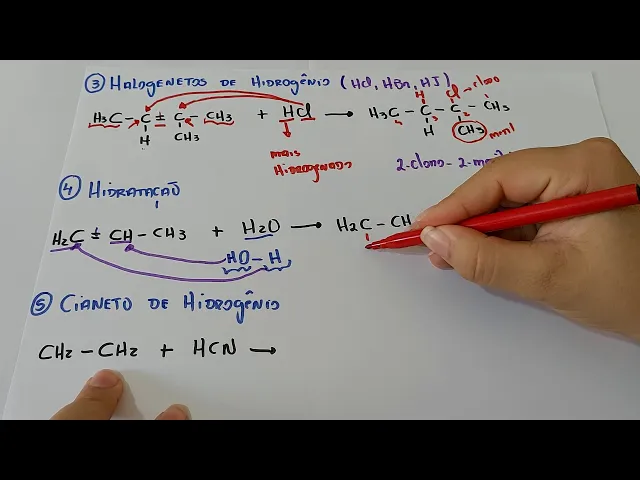 ③ HALOGENETOS DE HIDROGÊNIO (HCl, HBr, HI)
H₃C - C = C - CH₃ + HCl → H₃C - C - C - CH₃
H CH₃ H H Cl CH₃
4 3 2 1
cloro
metil
mais
Hidrogenado
2-cloro-2-
④ HIDRATAÇÃO
H₂C = CH - CH₃ + H₂O → H₂C - CH
HO - H
⑤ CIANETO DE HIDROGÊNIO
CH₂ - CH₂ + HCN →